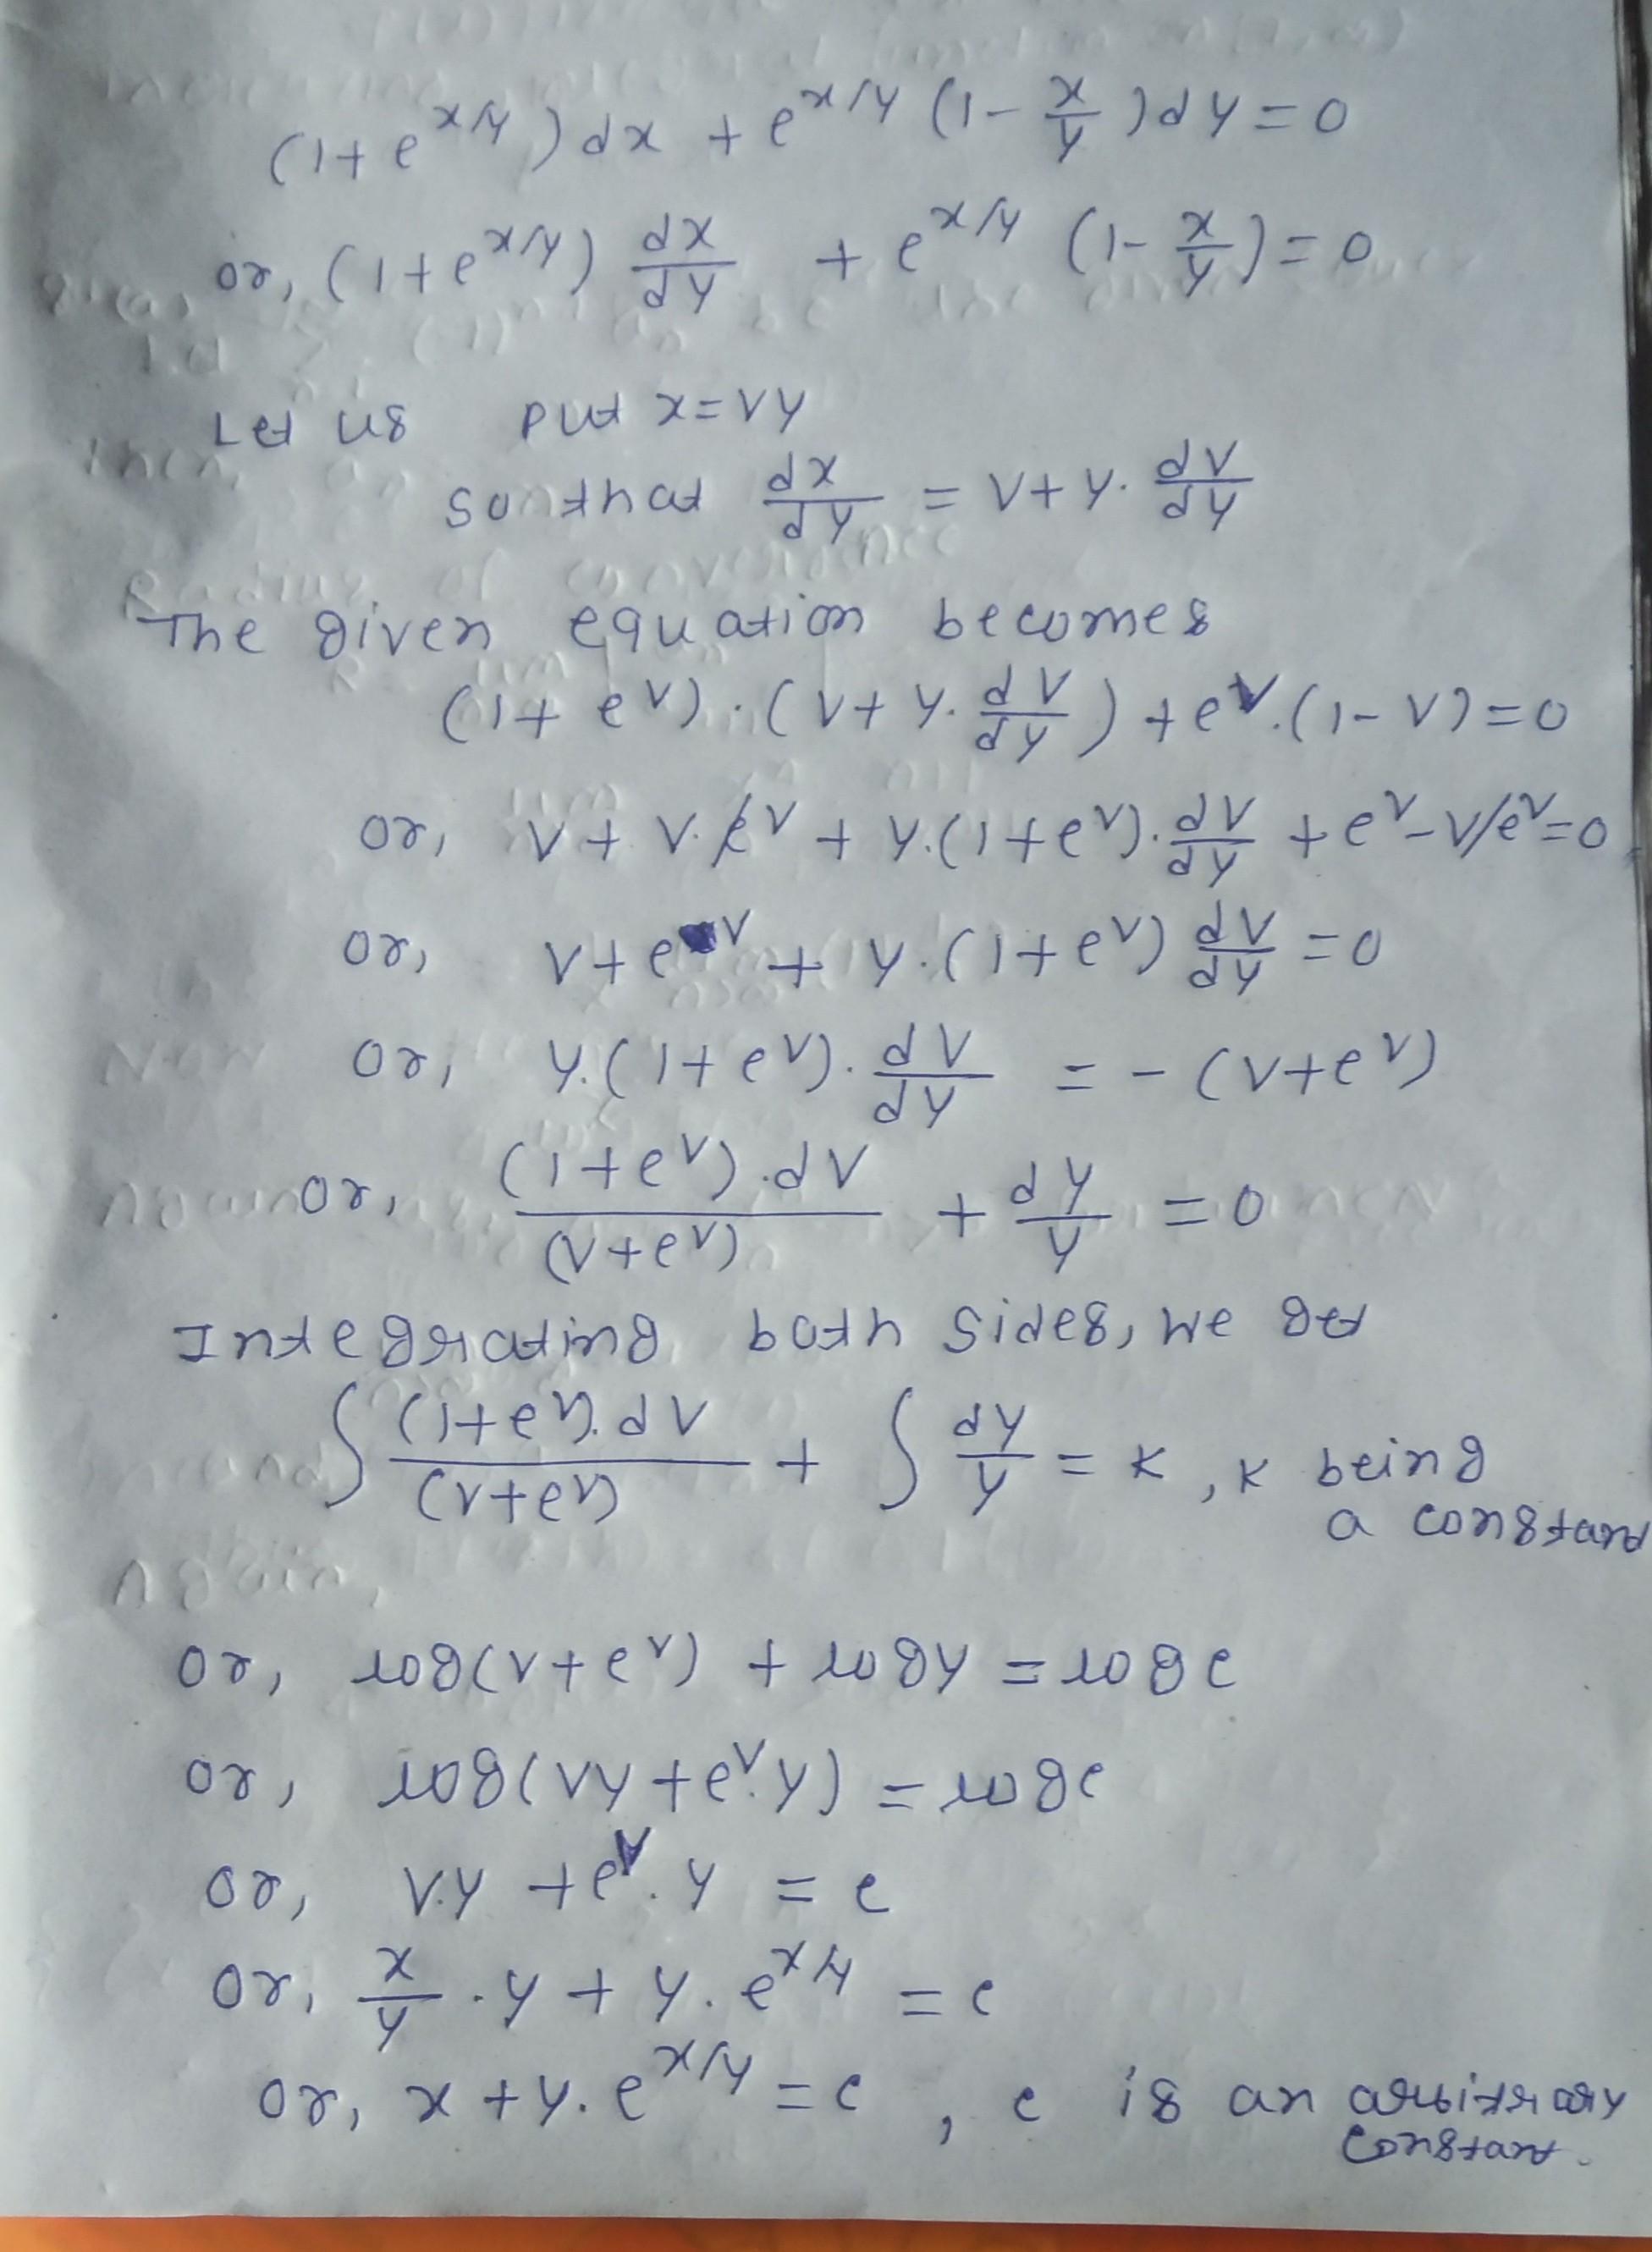 (1+e^{x/y})dx + e^{x/y} (1-\frac{x}{y})dy=0
or, (1+e^{x/y}) \frac{dx}{dy} + e^{x/y} (1-\frac{x}{y})=0
Let us put x=vy
so that \frac{dx}{dy} = v+y. \frac{dv}{dy}
The given equation becomes
(1+e^v).(v+y.\frac{dv}{dy})+e^v.(1-v)=0
or, v+v.e^v+y.(1+e^v).\frac{dv}{dy}+e^v-ve^v=0
or, v+e^v+y.(1+e^v)\frac{dv}{dy}=0
or, y.(1+e^v).\frac{dv}{dy} = -(v+e^v)
or, \frac{(1+e^v).dv}{(v+e^v)} + \frac{dy}{y} = 0
Integrating both sides, we get
∫\frac{(1+e^v).dv}{(v+e^v)} + ∫\frac{dy}{y} = k, k being
a constant
or, log(v+e^v) + logy = logc
or, log(vy+e^v.y) = logc
or, v.y+e^v.y = c
or, \frac{x}{y}.y+y.e^{x/y} = c
or, x+y.e^{x/y} = c, c is an arbitrary
constant.